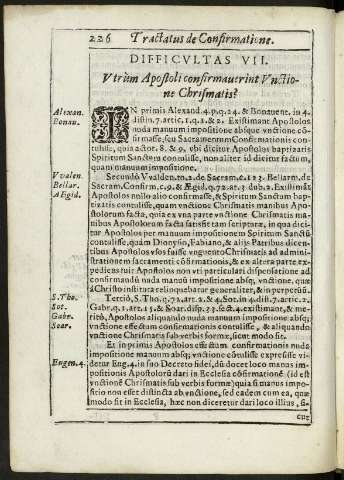 226 Tractatus de Confirmatione.
DIFFICVLTAS VII.
Vtrùm Apostoli confirmauerint Vnctio-
ne Chrismatis?
Alexan.
Bonau.
IN primis Alexand. 4. p. q. 24. & Bonauent. in 4.
distin. 7. artic. 1. q. 1. & 2. Existimant Apostolos
nuda manuum impositione absque vnctione cõ-
firmasse, seu Sacramentum Confirmationis con-
tulisse, quia actor. 8. & 9. vbi dicitur Apostolos baptizatis
Spiritum Sanctum contulisse, non aliter id dicitur factum,
quàm manuum impositione.
Vvalen.
Bellar.
AEgid.
Secundò Vvalden. to. 2. de Sacram. c. 113. Bellarm. de
Sacram. Confirm. c. 9. & Ægid. q. 72. ar. 3. dub. 2. Existimãt
Apostolos nullo alio confirmasse, & Spiritum Sanctum bap-
tizatis contulisse, quàm vnctione Chrismatis manibus Apo-
stolorum facta, quia ex vna parte vnctione Chrismatis ma-
nibus Apostolorum facta satisfit tam Scripturæ, in qua dici-
tur Apostolos per manuum impositionem Spiritum Sanctũ
contulisse, quàm Dionysio, Fabiano, & alijs Patribus dicen-
tibus Apostolos vsos fuisse vnguento Chrismatis ad admi-
nistrationem sacramenti cõfirmationis, & ex altera parte ex-
pedicus fuit Apostolos non vti particulari dispositione ad
confirmandũ nuda manũ impositione absq; vnctione, quæ
à Christo institura relinquebatur generaliter, & in perpetuũ.
S. Tho.
Sot.
Gabr.
Soar.
Tertiò, S. Tho. q. 72. art. 2. & 4. Sot. in 4. dist. 7. artic. 2.
Gabr. q. 1. art. 1. 5. & Soar. disp. 33. sect. 4. existimant, & me-
ritò, Apostolos aliquando nuda manuum impositione absq;
vnctione effectum confirmationis contulisse, & aliquando
vnctione Chrismatis sub verbis formæ, sicut modo fit.
Eugen. 4.
Et inprimis Apostolos effectum confirmationis nuda
impositione manuum absq; vnctione cõtulisse expressè vi-
detur Eug. 4. in suo Decreto fidei, dũ docet loco manus im-
positionis Apostolorũ dari in Ecclesia cõfirmationẽ (id est
vnctionẽ Chrismatis sub verbis formæ) quia si manus impo-
sitio non esset distincta ab vnctione, sed eadem cum ea, quæ
modò fit in Ecclesia, hæc non diceretur dari loco illius, si-
cut